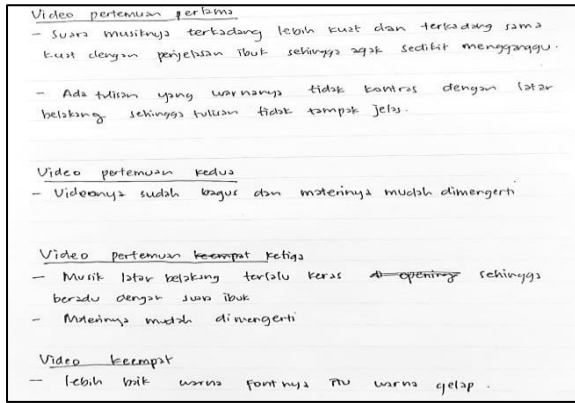 Video pertemuan pertama
- Suara musiknya terkadang lebih kuat dan terkadang sama
kuat dengan penjelasan ibuk sehingga agak sedikit mengganggu.
- Ada tulisan yang warnanya tidak kontras dengan latar
belakang sehingga tulisan tidak tampak jelas.
Video pertemuan kedua
- Videonya sudah bagus dan materinya mudah dimengerti
Video pertemuan keempat ketiga
- Musik latar belakang terlalu keras opening sehingga
beradu dengan suara ibuk
- Materinya mudah dimengerti
Video keempat
- lebih baik warna fontnya itu warna gelap.